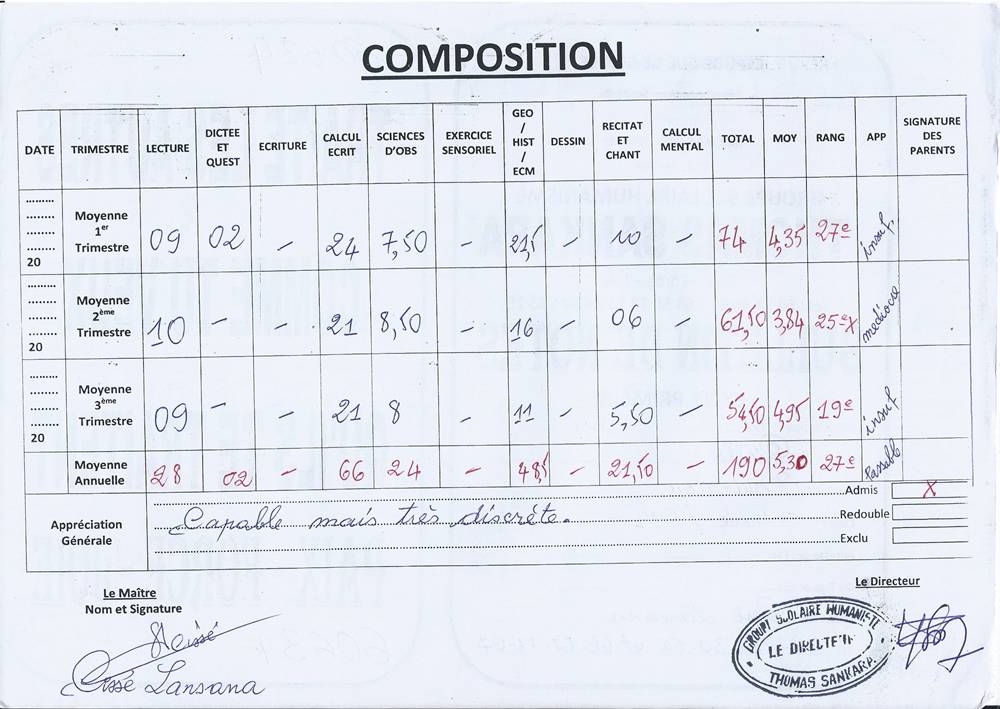 COMPOSITION
DATE TRIMESTRE LECTURE DICTEE ET QUEST ECRITURE CALCUL ECRIT SCIENCES D'OBS EXERCICE SENSORIEL GEO / HIST / ECM DESSIN RECITAT ET CHANT CALCUL MENTAL TOTAL MOY RANG APP SIGNATURE DES PARENTS
20 Moyenne 1er Trimestre 09 02 - 24 7,50 - 21,5 - 10 - 74 4,35 27e insuf
20 Moyenne 2ème Trimestre 10 - 21 8,50 - 16 - 06 - 61,50 3,84 25ex médiocre
20 Moyenne 3ème Trimestre 09 - - 21 8 - 11 - 5,50 - 54,50 4,95 19e insuf
Moyenne Annuelle 28 02 - 66 24 - 48,5 - 21,50 - 190 5,30 27e Passable
Appréciation Générale
Capable mais très discrète.
Admis X
Redouble
Exclu
Le Maître
Nom et Signature
Cissé Lansana
Le Directeur
GROUPE SCOLAIRE HUMANISTE
LE DIRECTEUR
THOMAS SANKARA